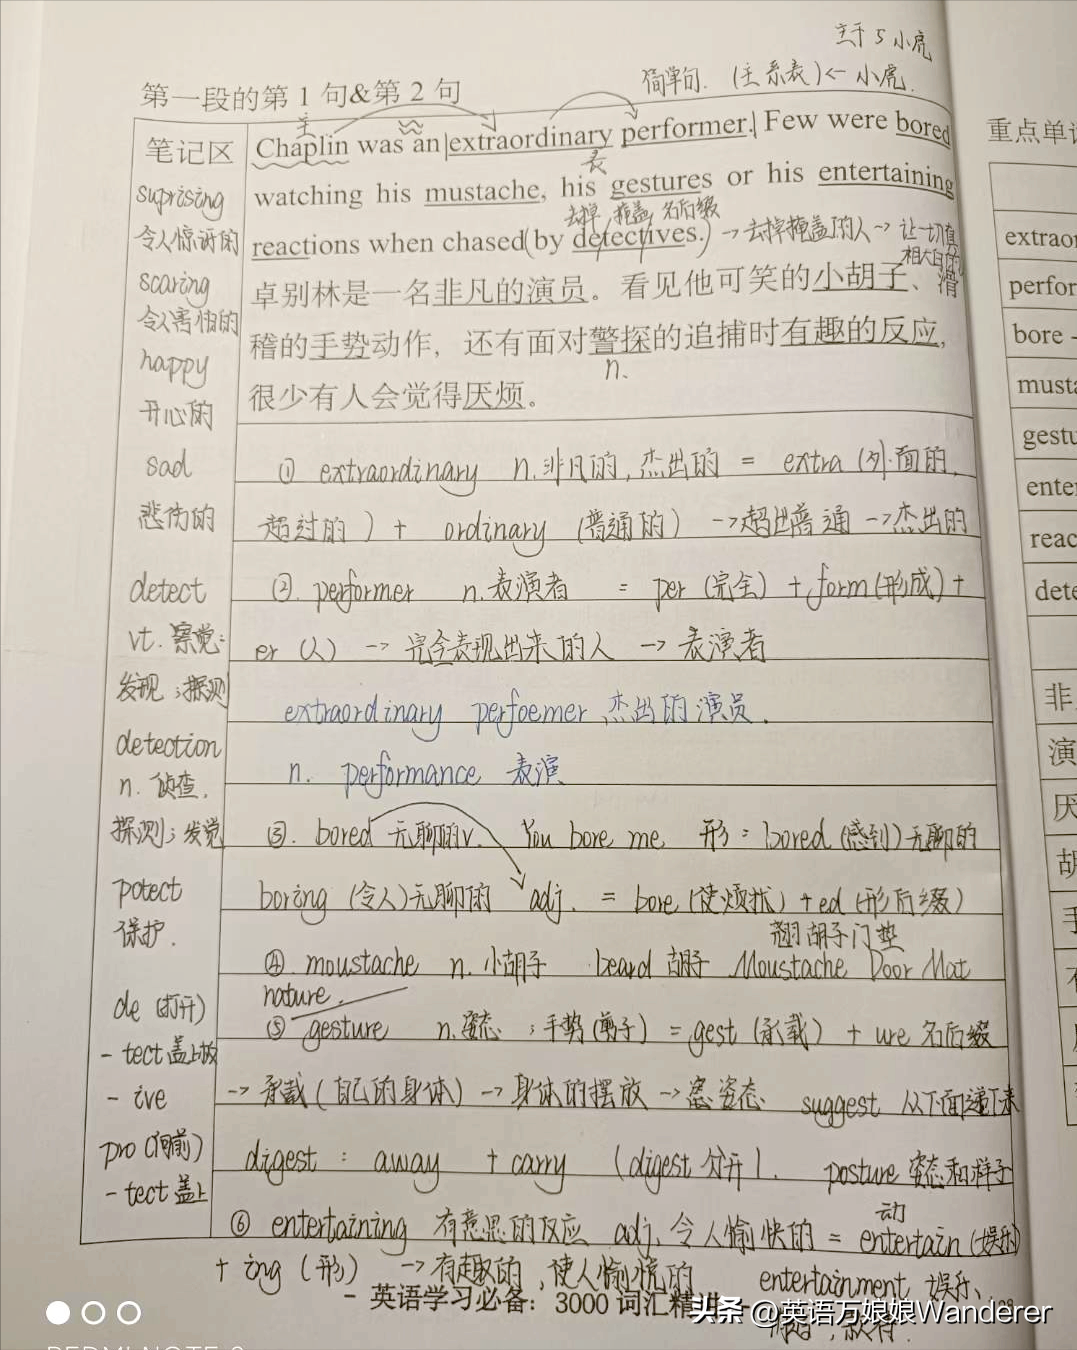 主干 5 小虎
简单句. (主系表)← 小虎.
第一段的第 1 句&第 2 句
主
笔记区
Chaplin was an extraordinary performer. Few were bored
表
watching his mustache, his gestures or his entertaining
去掉 掩盖 名后缀
reactions when chased(by detectives.) →去掉掩盖的人→ 让一切真
相大白的
卓别林是一名非凡的演员。看见他可笑的小胡子、滑
稽的手势动作，还有面对警探的追捕时有趣的反应，
n.
很少有人会觉得厌烦。
suprising
令人惊讶的
scaring
令人害怕的
happy
开心的
sad
悲伤的
detect
vt. 察觉;
发现;探测
detection
n. 侦查.
探测;发觉
potect
保护.
de (打开)
- tect 盖上
- ive
pro (向前)
- tect 盖上
① extraordinary n.非凡的,杰出的 = extra (外面的,
超过的) + ordinary (普通的) →超出普通→杰出的
②. performer n.表演者 = per (完全) + form (形成) +
er (人) → 完全表现出来的人 → 表演者
extraordinary perfoemer 杰出的演员.
n. performance 表演
③. bored 无聊的v. You bore me 形: bored (感到)无聊的
boring (令人)无聊的 adj. = bore (使烦扰) + ed (形后缀)
翘胡子门垫
④. moustache n. 小胡子 beard 胡子 Moustache Door Mat
nature.
⑤ gesture n.姿态;手势(剪子) = gest (承载) + ure 名后缀
→ 承载(自己的身体) → 身体的摆放 → 姿态 suggest 从下面递下来
digest : away + carry (digest 分开). posture 姿态和样子
⑥ entertaining 有意思的反应 adj, 令人愉快的 = entertain (娱乐)
动
+ ing (形) → 有趣的,使人愉悦的 entertainment 娱乐、
- 英语学习必备：3000 词汇精
款待.
头条 @英语万娘娘Wanderer
重点单词
extraor
perfor
bore -
musta
gestu
enter
reac
dete
非
演
厌
胡
手
REDMI NOTE 8